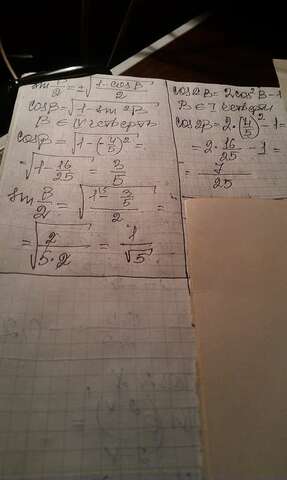 sin β/2 = ±√((1-cosβ)/2)
cosβ = √(1-sin²β)
β ∈ IV четверть
cosβ = √(1-(-4/5)²) =
= √(1-16/25) = 3/5
sin β/2 = √((1-3/5)/2) =
= √(2/(5·2)) = 1/√5
cos2β = 2cos²β-1
β ∈ I четверти
cos2β = 2·(4/5)²-1=
= 2·16/25 -1 =
= 7/25